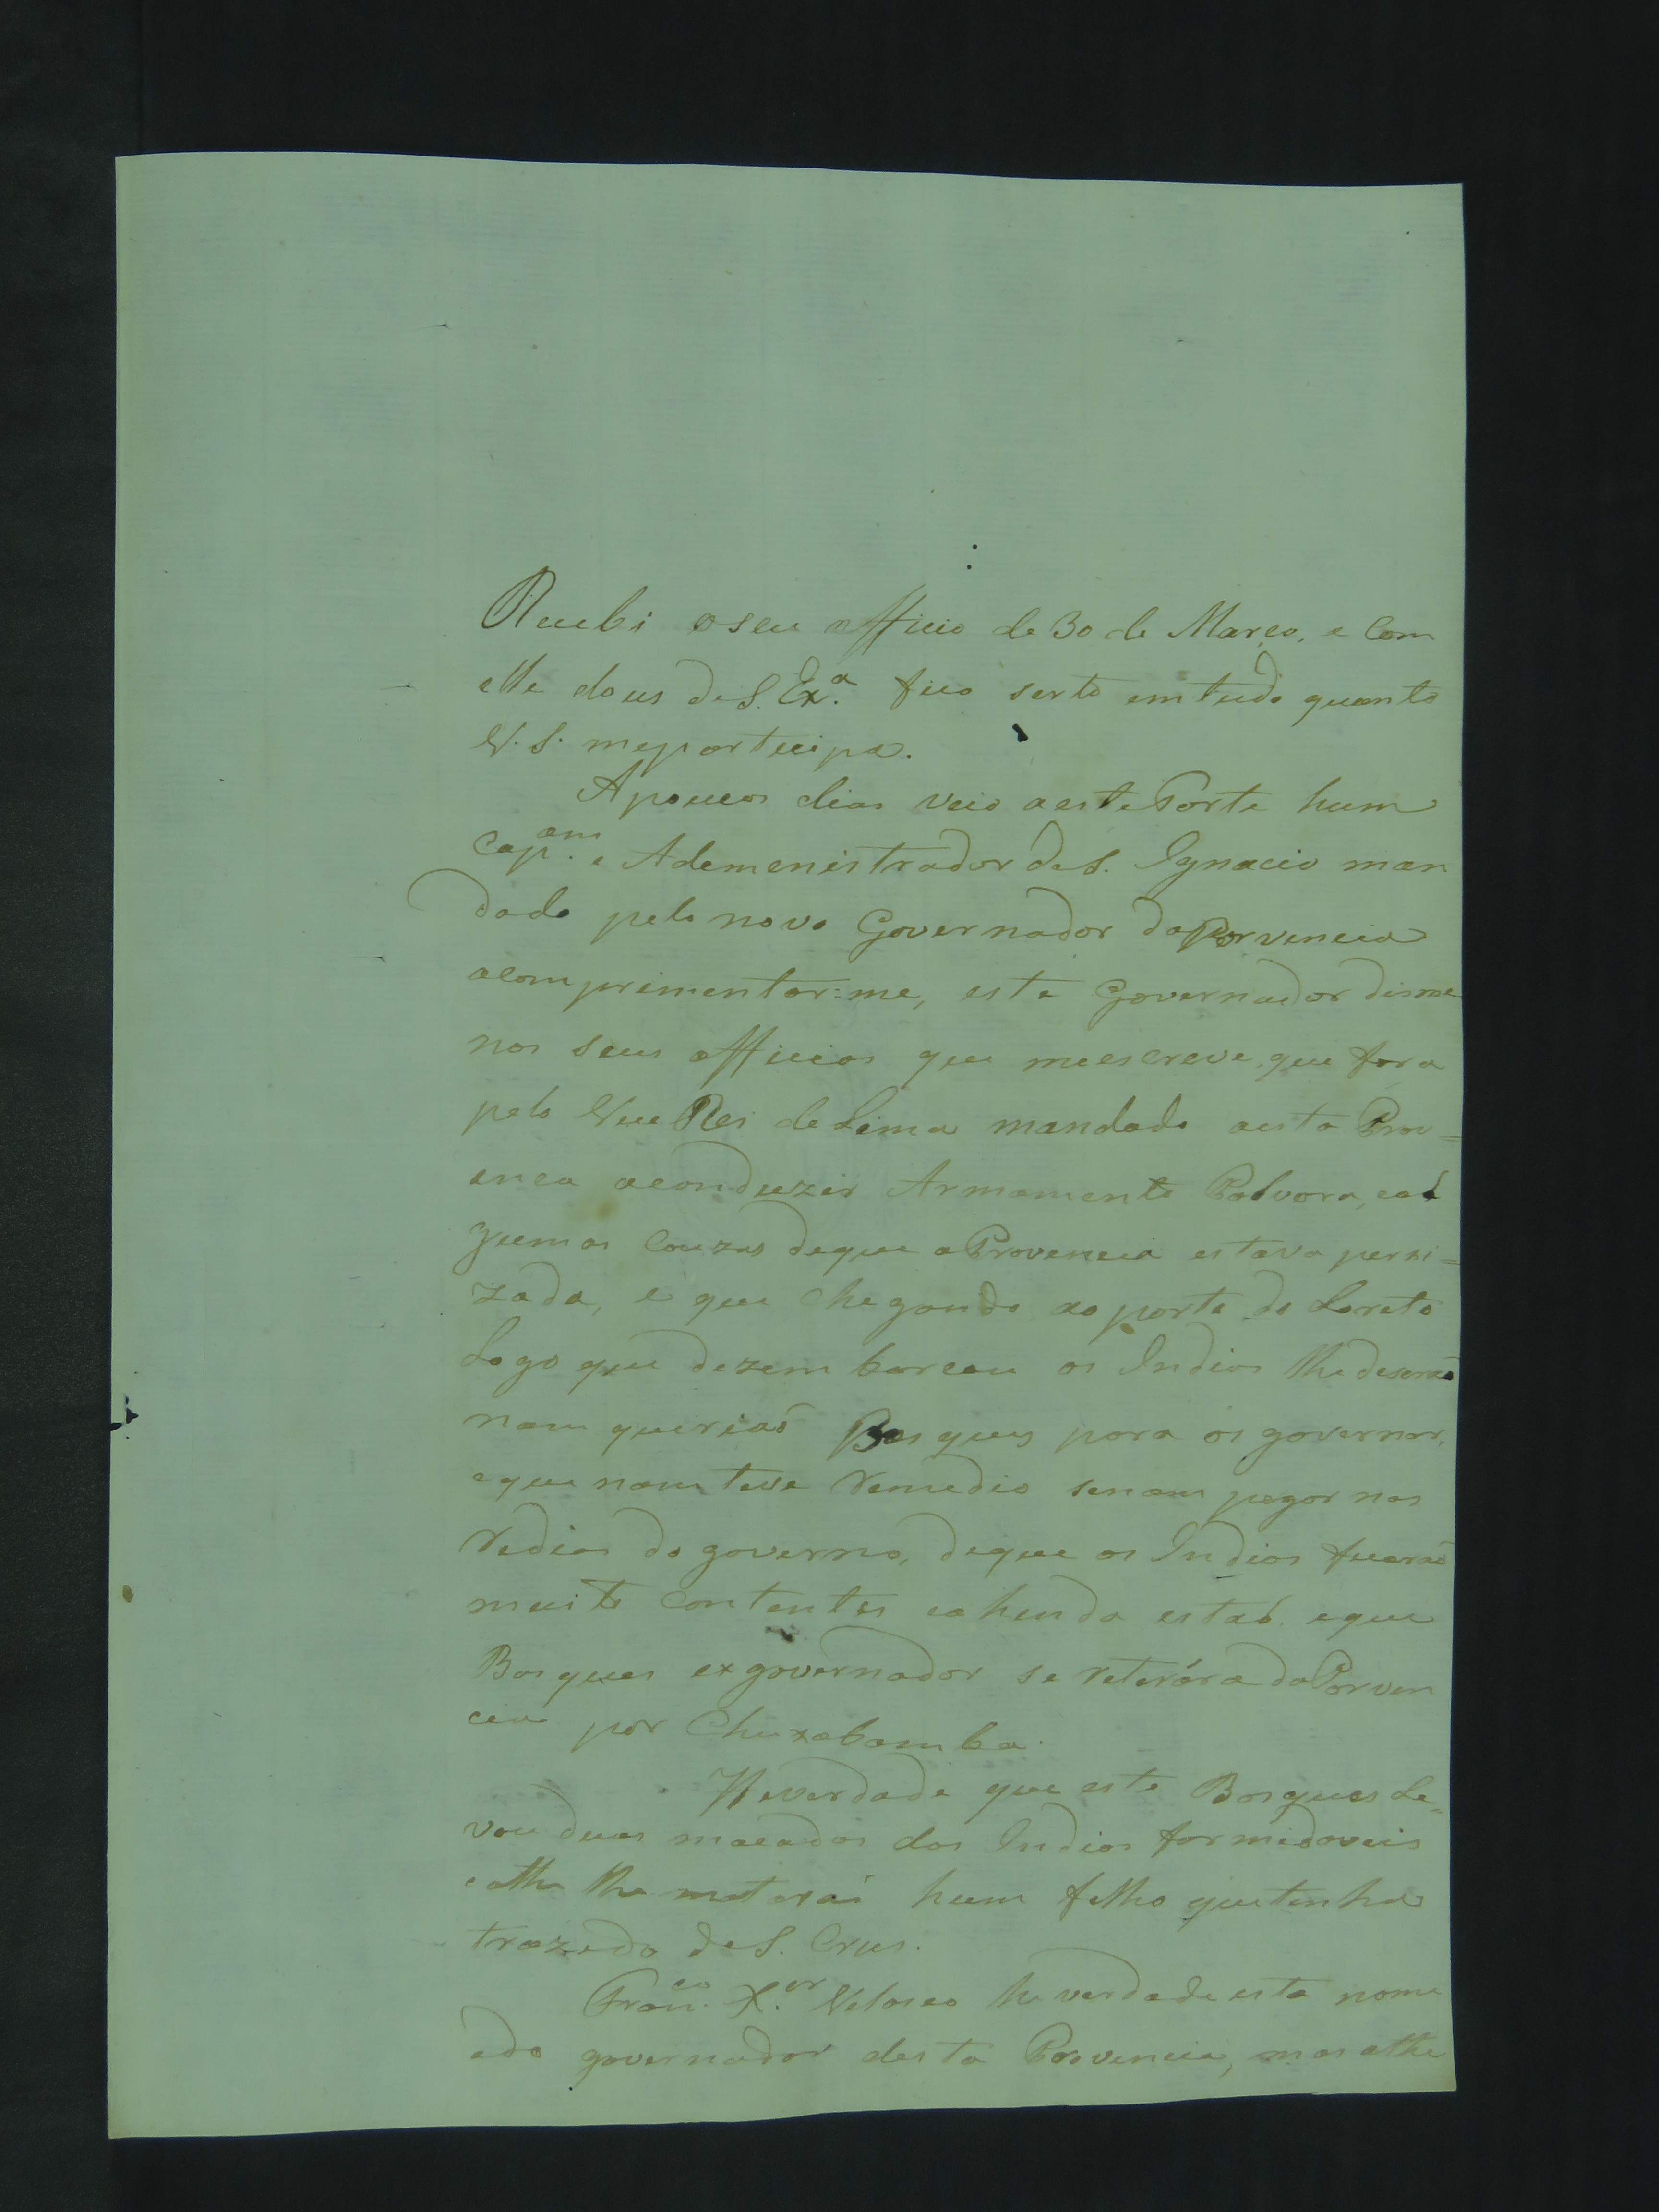 Recebi o seu officio de 30 de Março, e Com
elle dous de S. Ex.ª fico serto em tudo quanto
V. S. me partecipa.
A poucos dias veio a este Forte hum
Cap.am e Ademenistrador de S. Ignacio man
dado pelo novo Governador da Porvencia
a Comprimentar=me, este Governador disme
nos seus officios que me escreve, que fora
pelo Vice Rei de Lima mandado a esta Prov=
enca a conduzir Armamento Polvora, e al
gumas Couzas de que a Provencia estava persi=
zada, e que chegando ao porto do Loreto
Logo que dezembarcou os Indios lhe deserao
nam queriaõ Basques para os governar,
e que nam teve Remedio senam pegar nas
Redias do governo, de que os Indios ficarao
muito Contentes e ahinda estaõ. e que
Basques ex governador se reterára da Porven
cea por Chuxabamba.
He verdade que este Basques Le=
vou duas macadas dos Indios formidaveis
e athe lhe mataraõ hum filho que tenha
trazedo de S. Crus.
Fran.co X.er Velasco he verdade esta nome
ado governador desta Provencia, mas athe